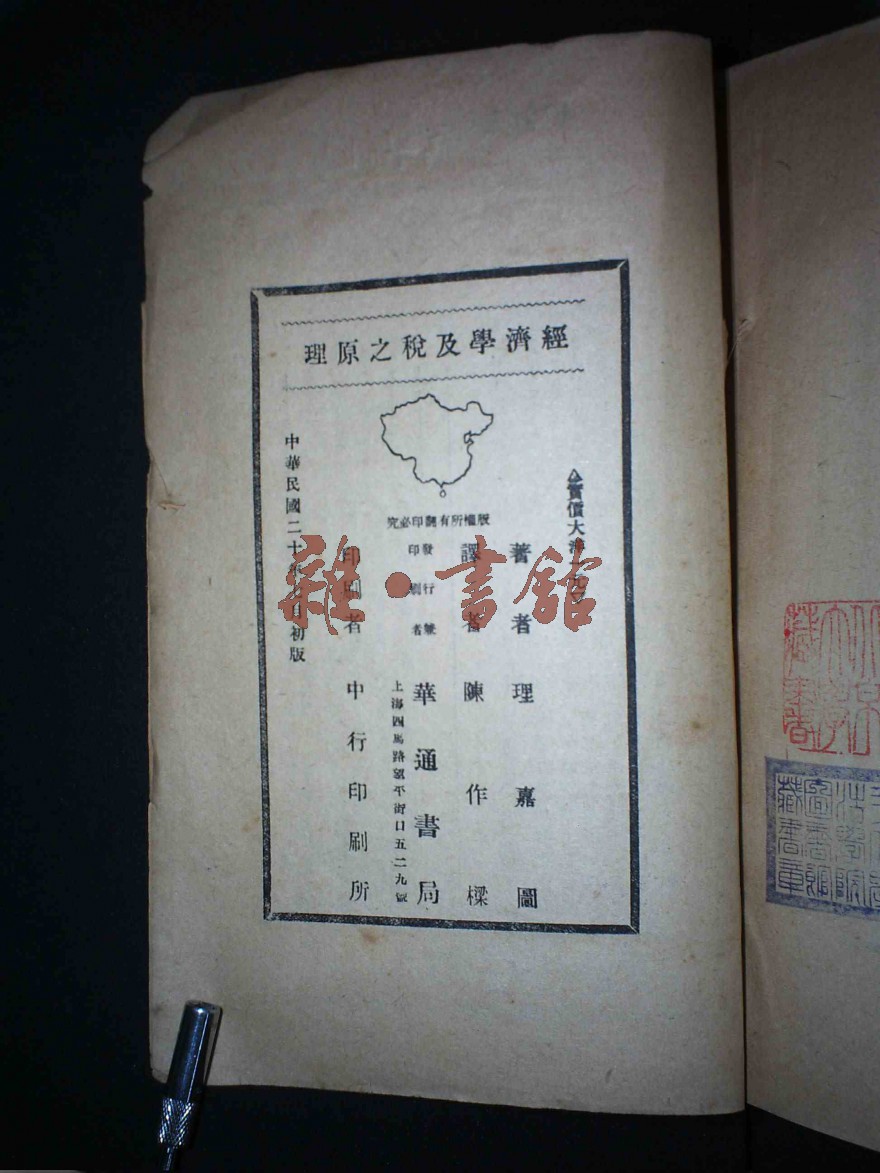 經濟學及稅之原理
版權所有翻印必究
實價大洋
著者 理嘉圖
譯者 陳作樑
發行兼印刷者 華通書局
上海四馬路望平街口五二九號
印刷者 中行印刷所
中華民國二十年 月初版
雜·書館
法學院
圖書館
藏書章